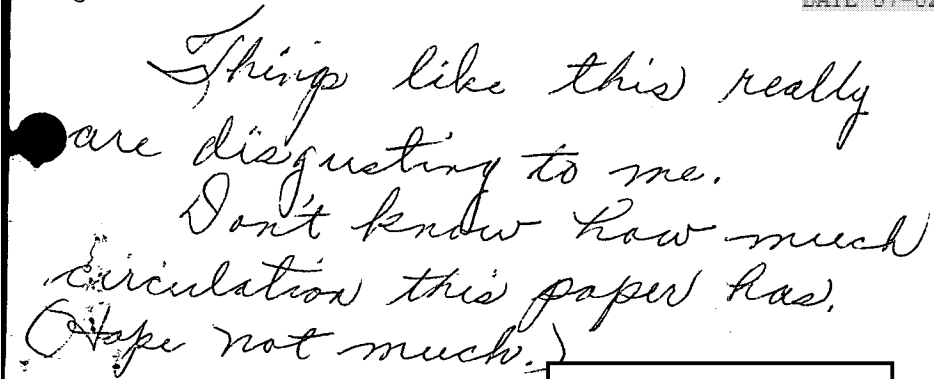 Things like this really
are disgusting to me.
Don't know how much
circulation this paper has.
(Hope not much.)